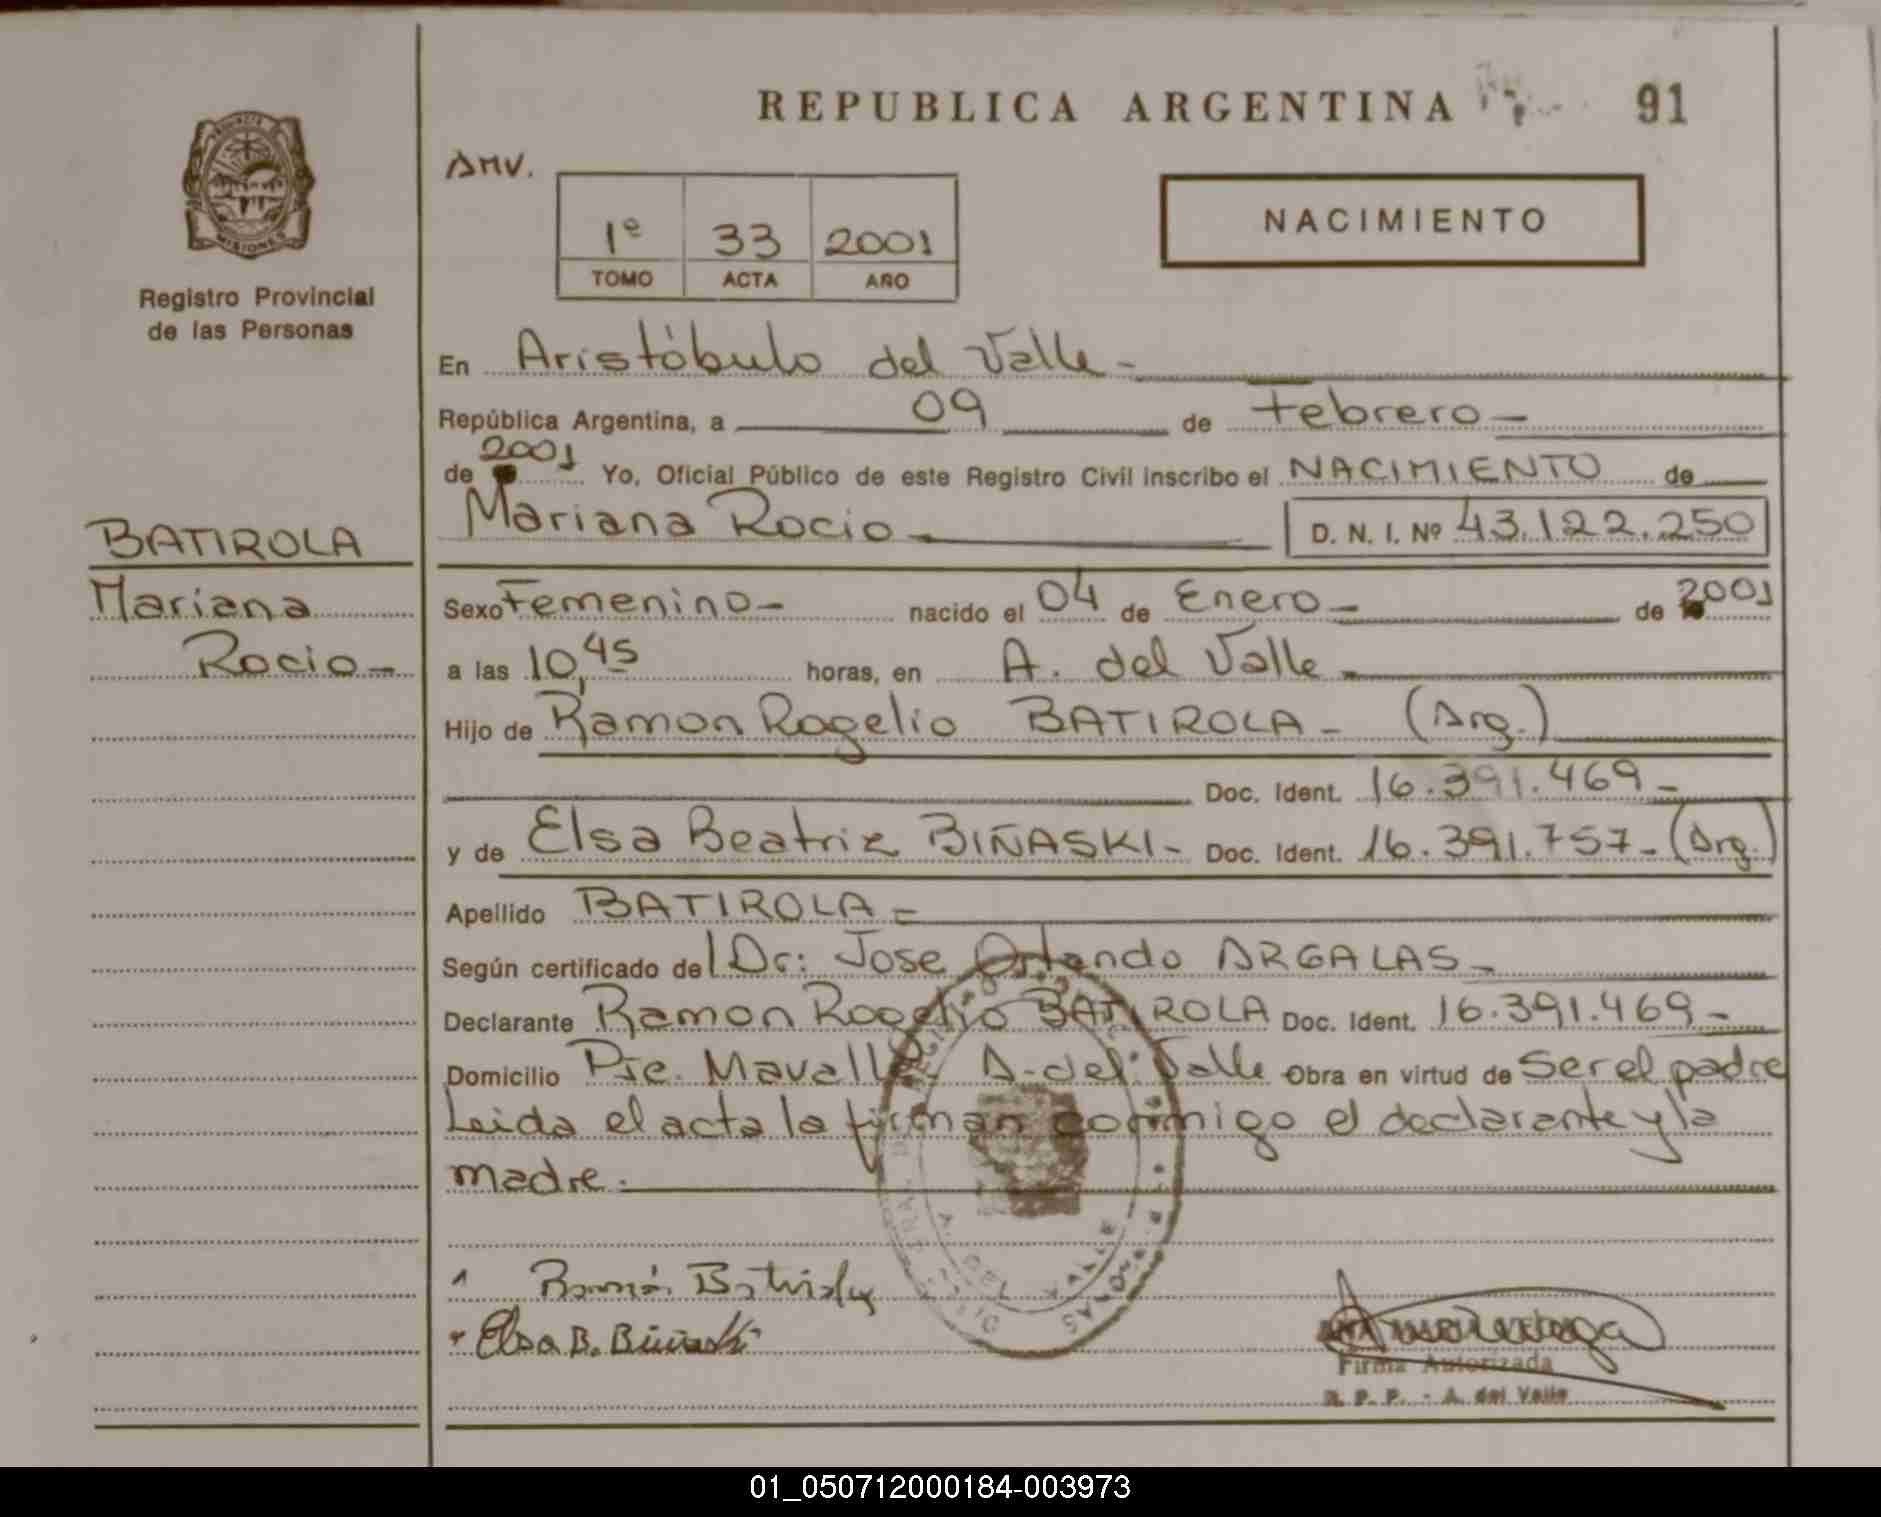 REPUBLICA ARGENTINA 91
AMV.
1º 33 2001
TOMO ACTA AÑO
NACIMIENTO
PROVINCIA DE
MISIONES
Registro Provincial
de las Personas
En Aristóbulo del Valle -
República Argentina, a 09 de Febrero -
de 2001 Yo, Oficial Público de este Registro Civil inscribo el NACIMIENTO de
Mariana Rocio D. N. I. Nº 43.122.250
BATIROLA
Mariana
Rocio -
Sexo Femenino - nacido el 04 de Enero - de 2001
a las 10,45 horas, en A. del Valle -
Hijo de Ramon Rogelio BATIROLA - (Arg.)
Doc. Ident. 16.391.469 -
y de Elsa Beatriz BIÑASKI - Doc. Ident. 16.391.757 - (Arg.)
Apellido BATIROLA =
Según certificado del Dr: Jose Orlando ARGALAS -
Declarante Ramon Rogelio BATIROLA Doc. Ident. 16.391.469 -
Domicilio Pje. Mavalle A. del Valle Obra en virtud de Ser el padre
Leida el acta la firman conmigo el declarante y la
madre.
Elsa B. Biñaski
Firma Autorizada
R. P. P. - A. del Valle
A. DEL VALLE
01_050712000184-003973